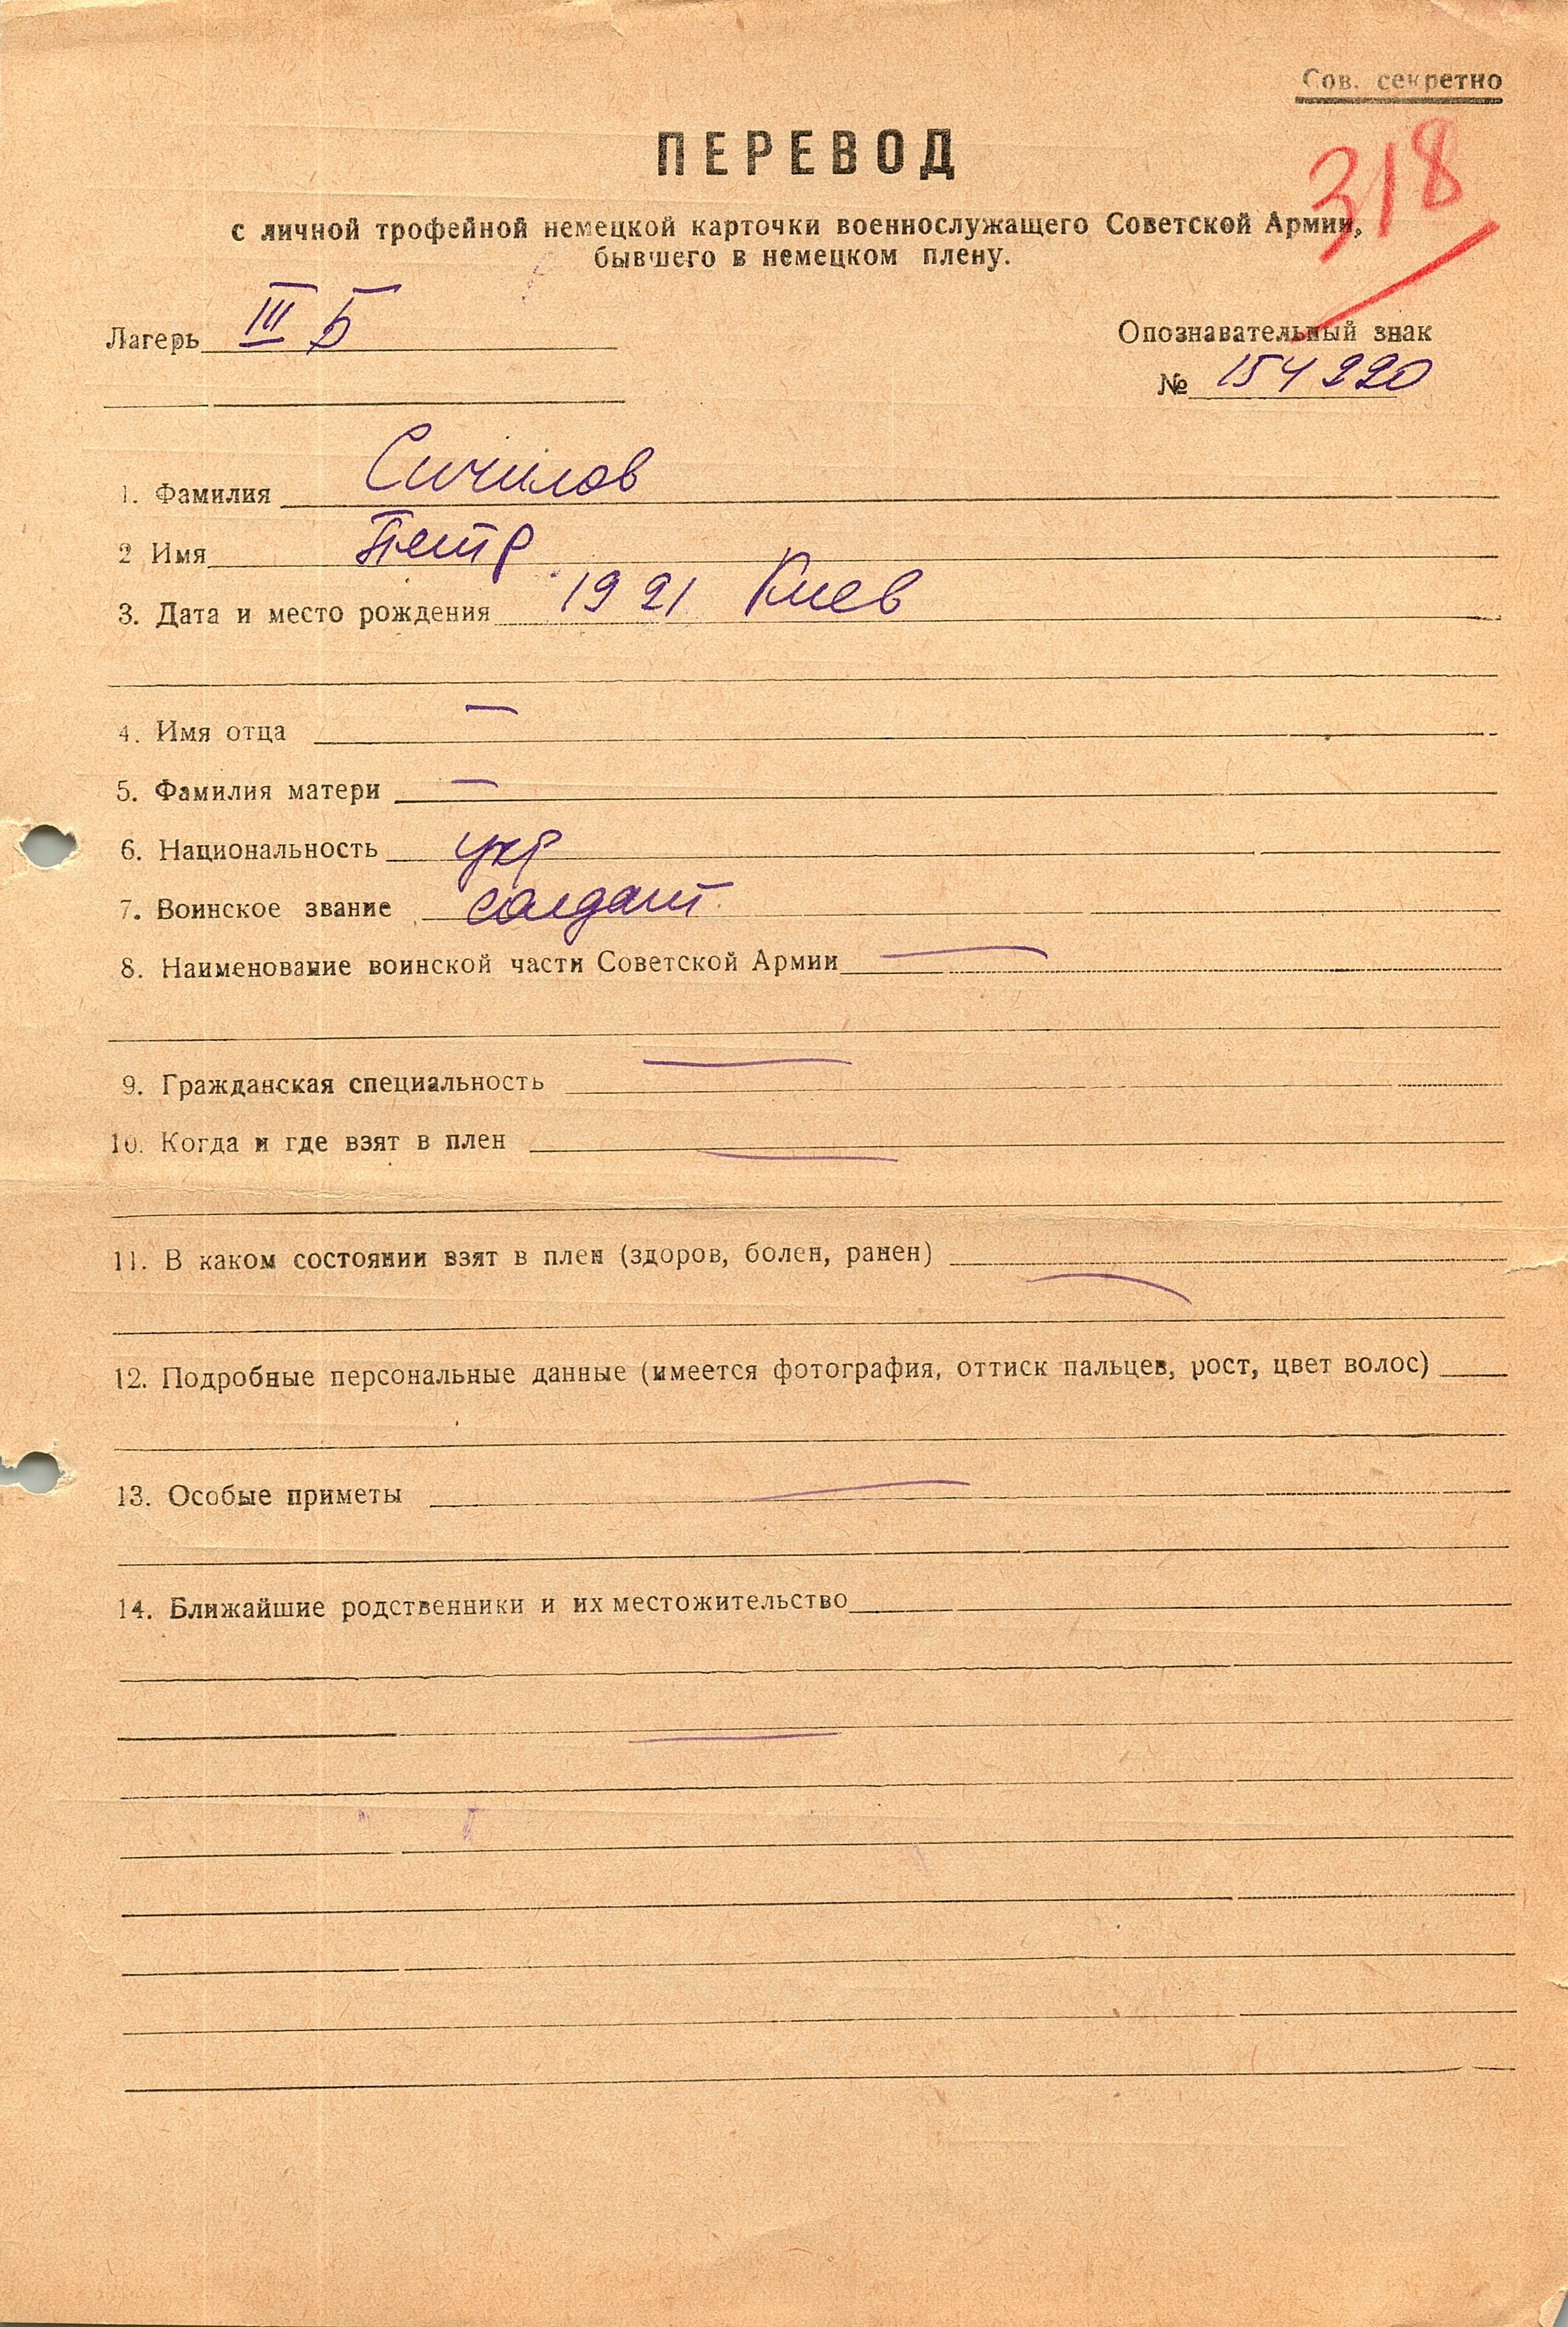 Сов. секретно
318
ПЕРЕВОД
с личной трофейной немецкой карточки военнослужащего Советской Армии,
бывшего в немецком плену.
Лагерь III Б
Опознавательный знак
№ 154220
1. Фамилия Сичилов
2 Имя Петр
3. Дата и место рождения 1921 Киев
4. Имя отца —
5. Фамилия матери —
6. Национальность укр
7. Воинское звание солдат
8. Наименование воинской части Советской Армии —
9. Гражданская специальность —
10. Когда и где взят в плен —
11. В каком состоянии взят в плен (здоров, болен, ранен) —
12. Подробные персональные данные (имеется фотография, оттиск пальцев, рост, цвет волос)
13. Особые приметы —
14. Ближайшие родственники и их местожительство
—